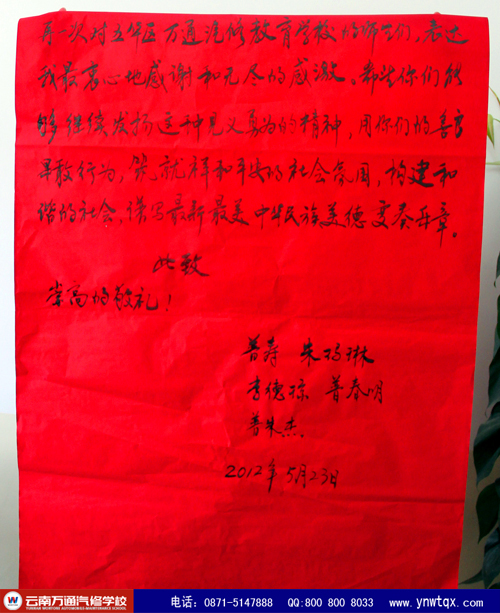 再一次对五华区万通汽修教育学校的师生们，表达
我最衷心地感谢和无尽的感激。希望你们能
够继续发扬这种见义勇为的精神，用你们的善良
勇敢行为，铸就祥和平安的社会氛围，构建和
谐的社会，谱写最新最美中华民族美德变奏乐章。
此致
崇高的敬礼！
普寿 朱杨琳
李德琼 普春明
普朱杰
2012年5月23日
云南万通汽修学校
电话：0871-5147888 QQ:800 800 8033 www.ynwtqx.com